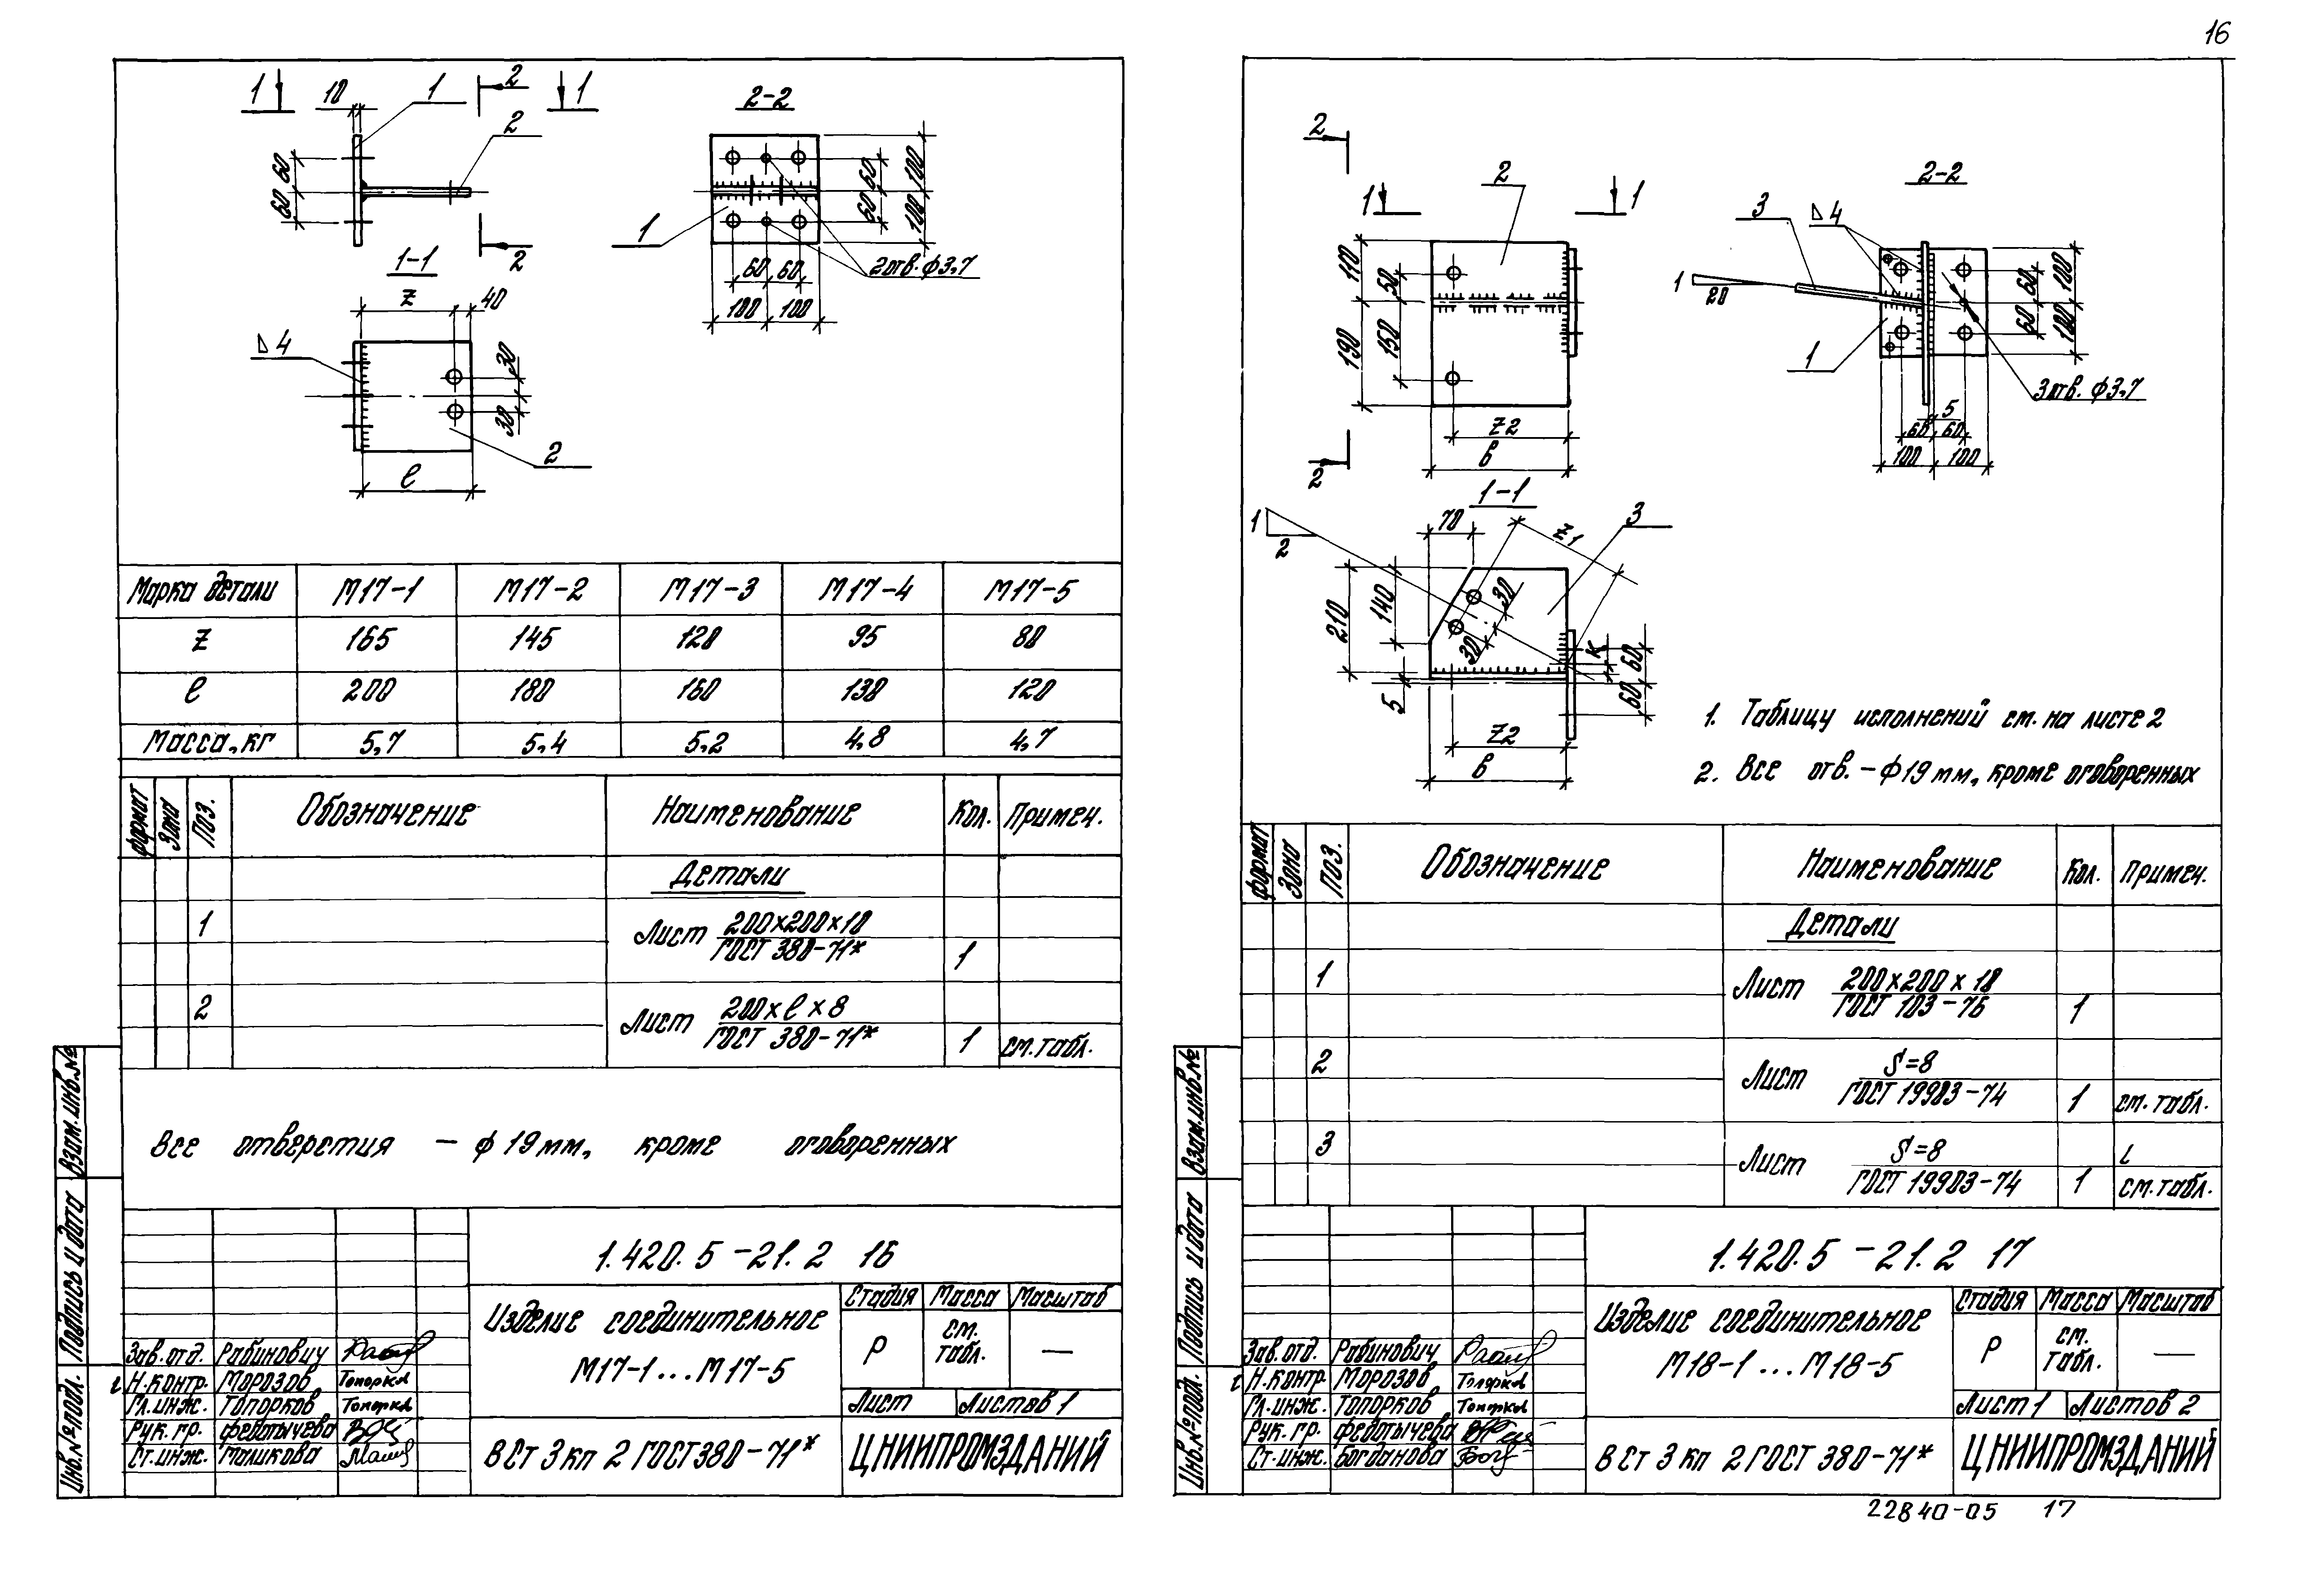 16
1
10
1
2
1
2
60
60
2
2-2
60
100
60
100
1
60
60
100
100
2отв. ф3,7
1-1
z
40
4
30
30
2
ℓ
Марка детали М17-1 М17-2 М17-3 М17-4 М17-5
z 165 145 120 95 80
ℓ 200 180 160 130 120
Масса, кг 5,7 5,4 5,2 4,8 4,7
формат Зона Поз. Обозначение Наименование Кол. Примеч.
Детали
1 Лист 200х200х10
ГОСТ 380-71* 1
2 Лист 200 х ℓ х 8
ГОСТ 380-71* 1 см.табл.
Все отверстия - ф 19 мм, кроме оговоренных
1.420.5-21.2 16
Изделие соединительное
М17-1...М17-5
Стадия Масса Масштаб
Р см. табл. —
Лист Листов 1
Зав.отд. Рабинович
Н.контр. Морозов Топорков
Гл.инж. Топорков Топорков
Рук.гр. Федотычева
Ст.инж. Маликова
В Ст 3 кп 2 ГОСТ 380-71*
ЦНИИПРОМЗДАНИЙ
Инв.№ подл.
Подпись и дата
Взам.инв.№
2
1
2
1
110
50
190
150
z2
в
2
2-2
3
4
1
20
1
60
100
60
100
3отв. ф3,7
5
60
60
100
100
1-1
1
2
70
z1
3
210
140
30
30
К
60
60
5
z2
в
1. Таблицу исполнений см. на листе 2
2. Все отв. - ф 19 мм, кроме оговоренных
формат Зона Поз. Обозначение Наименование Кол. Примеч.
Детали
1 Лист 200х200х10
ГОСТ 103-76 1
2 Лист S=8
ГОСТ 19903-74 1 см. табл.
3 Лист S=8
ГОСТ 19903-74 1 см. табл.
1.420.5-21.2 17
Изделие соединительное
М18-1...М18-5
Стадия Масса Масштаб
Р см. табл. —
Лист 1 Листов 2
Зав.отд. Рабинович
Н.контр. Морозов Топорков
Гл.инж. Топорков Топорков
Рук.гр. Федотычева
Ст.инж. Богданова
В Ст 3 кп 2 ГОСТ 380-71*
ЦНИИПРОМЗДАНИЙ
Инв.№ подл.
Подпись и дата
Взам.инв.№
22840-05 17